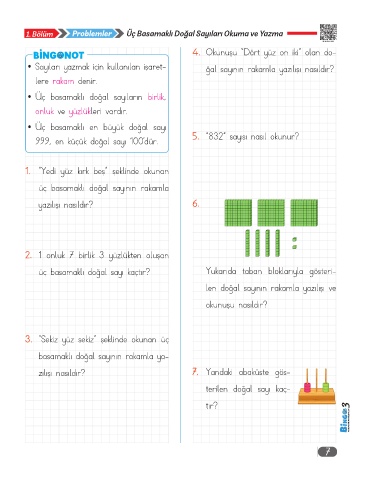 1. Bölüm Problemler Üç Basamaklı Doğal Sayıları Okuma ve Yazma
BİNGONOT
• Sayıları yazmak için kullanılan işaret-
lere rakam denir.
• Üç basamaklı doğal sayıların birlik,
onluk ve yüzlükleri vardır.
• Üç basamaklı en büyük doğal sayı
999, en küçük doğal sayı 100'dür.
1. "Yedi yüz kırk beş" şeklinde okunan
üç basamaklı doğal sayının rakamla
yazılışı nasıldır?
2. 1 onluk 7 birlik 3 yüzlükten oluşan
üç basamaklı doğal sayı kaçtır?
3. "Sekiz yüz sekiz" şeklinde okunan üç
basamaklı doğal sayının rakamla ya-
zılışı nasıldır?
4. Okunuşu "Dört yüz on iki" olan do-
ğal sayının rakamla yazılışı nasıldır?
5. "832" sayısı nasıl okunur?
6.
Yukarıda taban bloklarıyla gösteri-
len doğal sayının rakamla yazılışı ve
okunuşu nasıldır?
7. Yandaki abaküste gös-
terilen doğal sayı kaç-
tır?
BİNGO 3
7